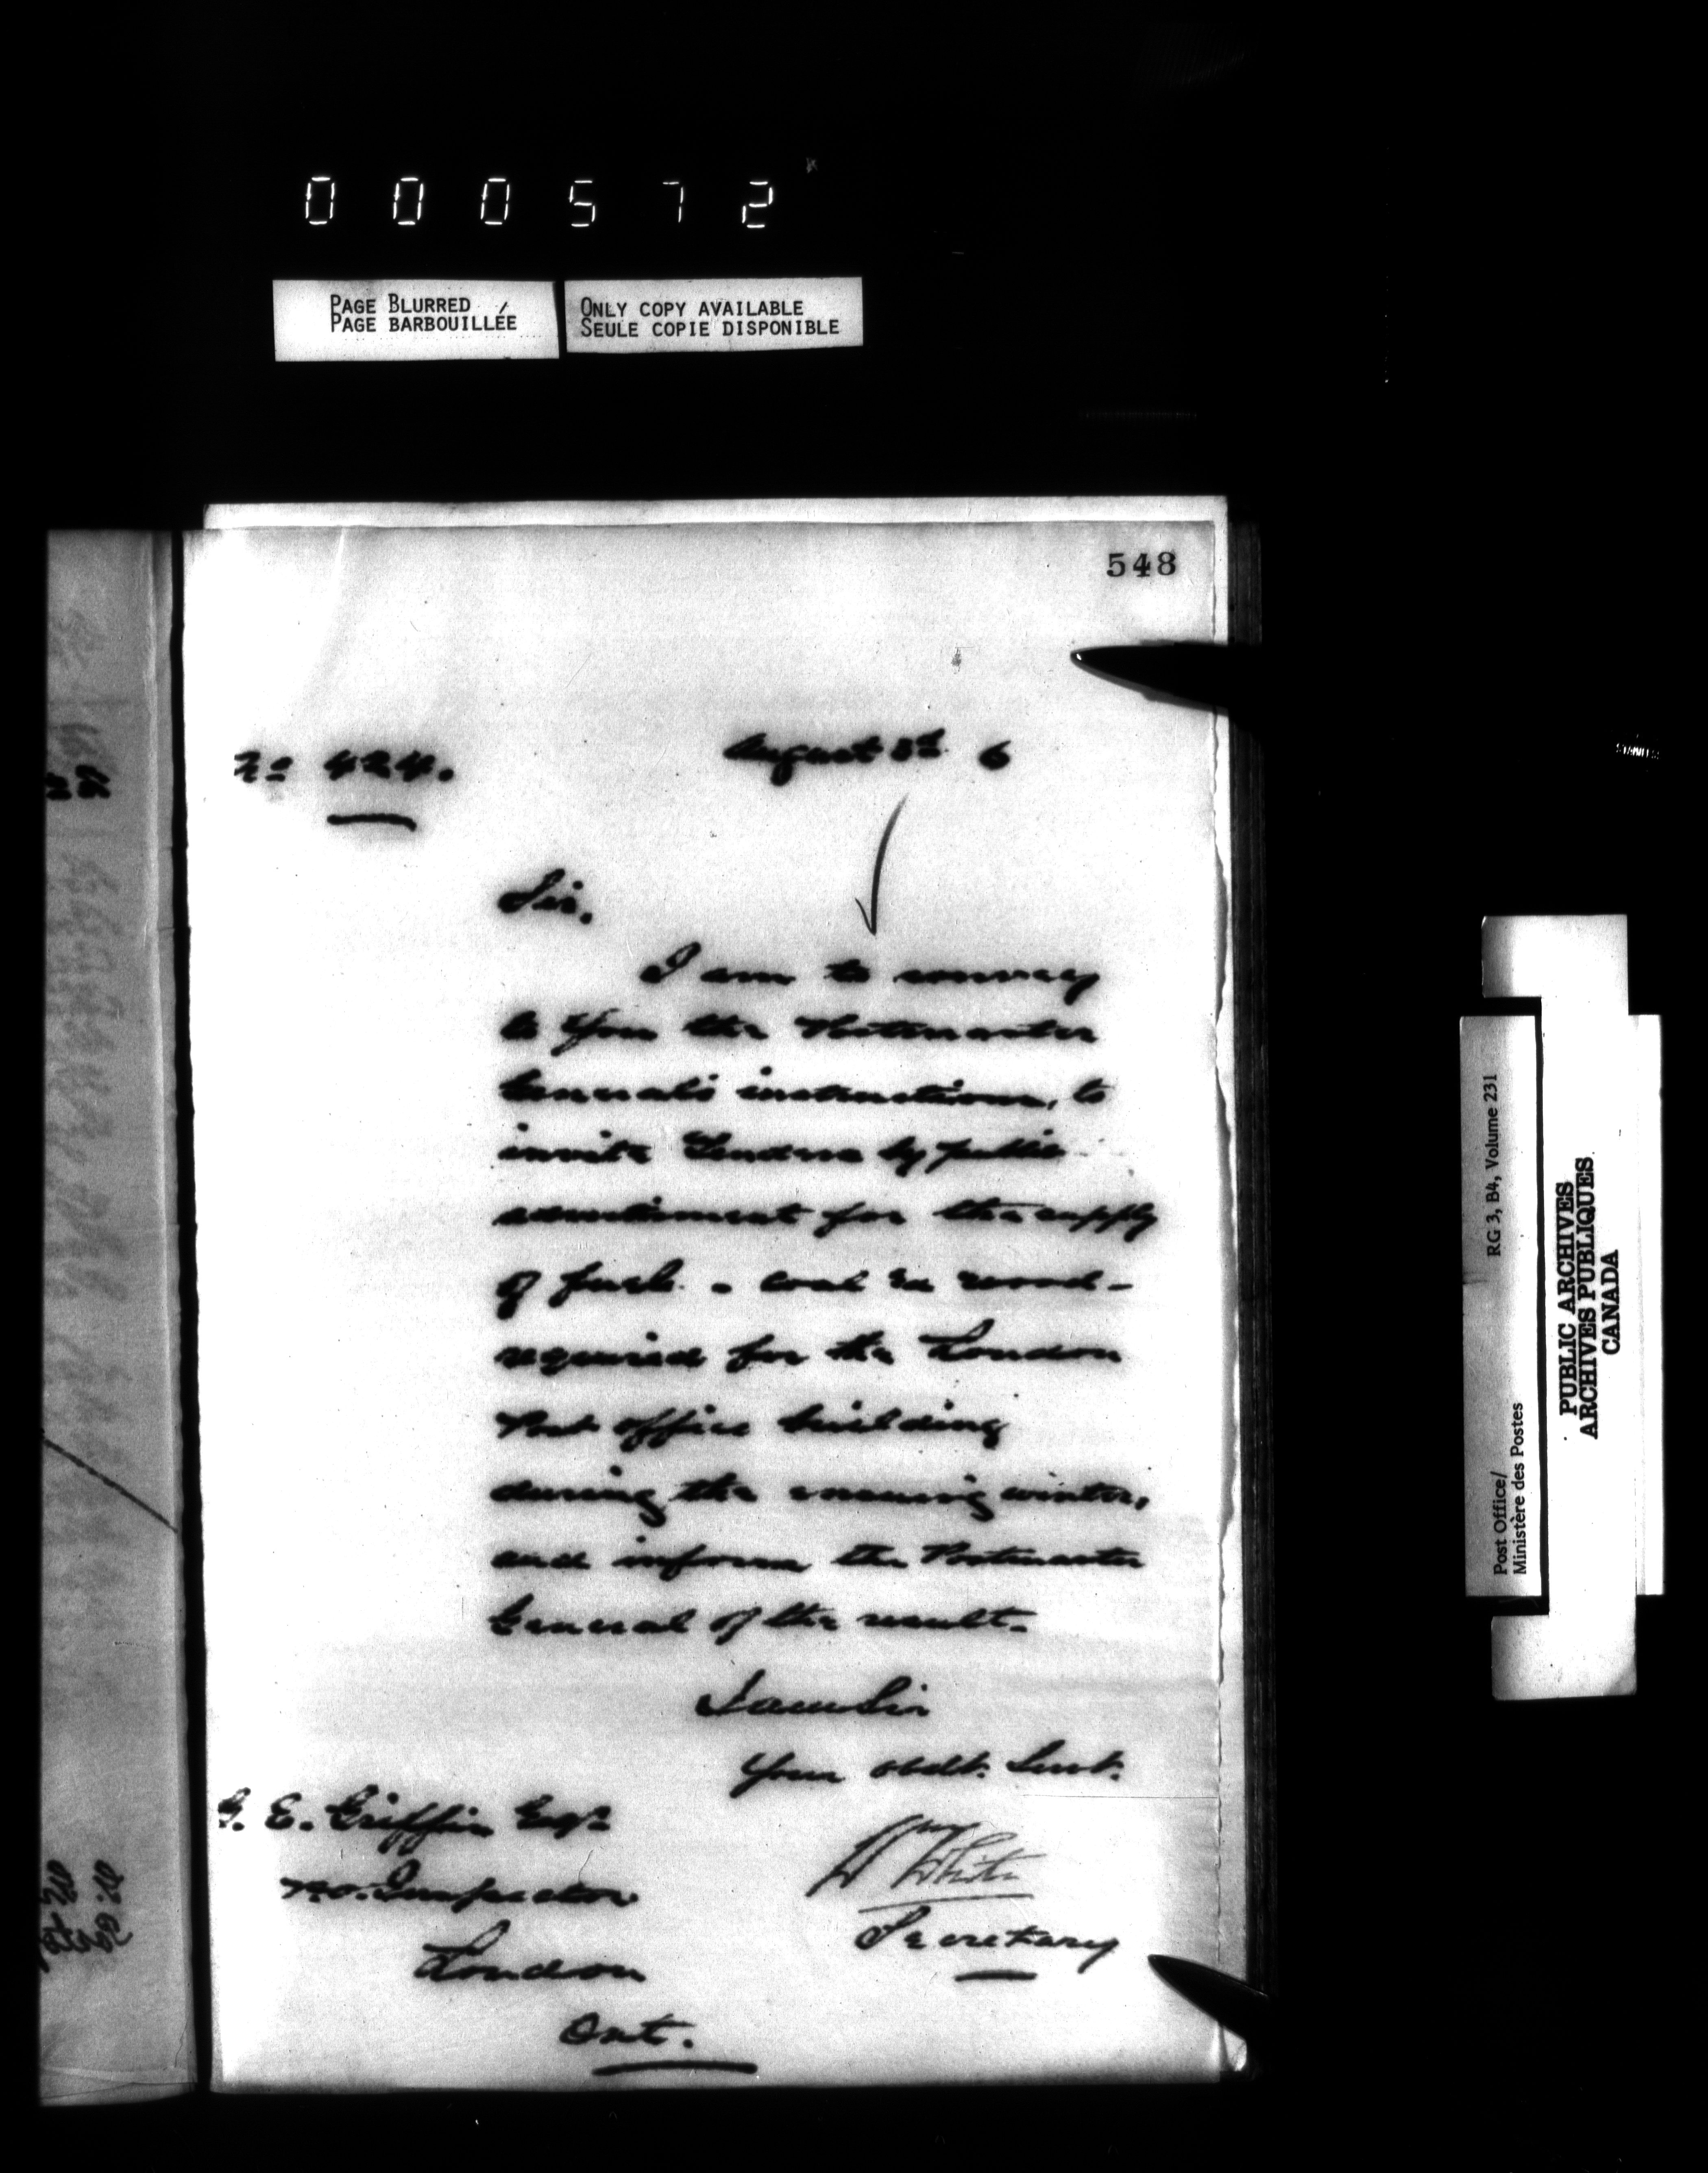 000572
PAGE BLURRED
PAGE BARBOUILLÉE
ONLY COPY AVAILABLE
SEULE COPIE DISPONIBLE
548
No 424.
August 5th 6
Sir.
I am to convey
to you the Postmaster
General's instructions, to
invite Tenders by public
advertisement for the supply
of fuel. - coal &c wood -
required for the London
Post office building
during the ensuing winter,
and inform the Postmaster
General of the result.
I am Sir
Your obdt. Servt.
Wm White
Secretary
G. E. Griffin Esqr
P.O. Inspector
London
Ont.
RG 3, B4, Volume 231
Post Office/
Ministère des Postes
PUBLIC ARCHIVES
ARCHIVES PUBLIQUES
CANADA